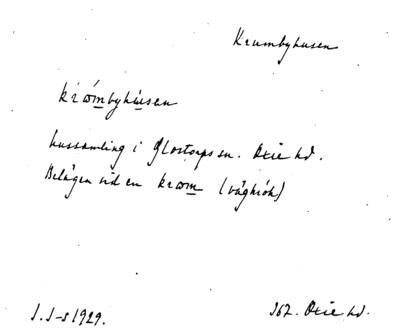 Krumbyhusen
krὼmbyhúsen
hussamling i Glostorps sn. Oxie hd.
Belägen vid en krωm (vägkrök)
J.J-s 1929.
362. Oxie hd.